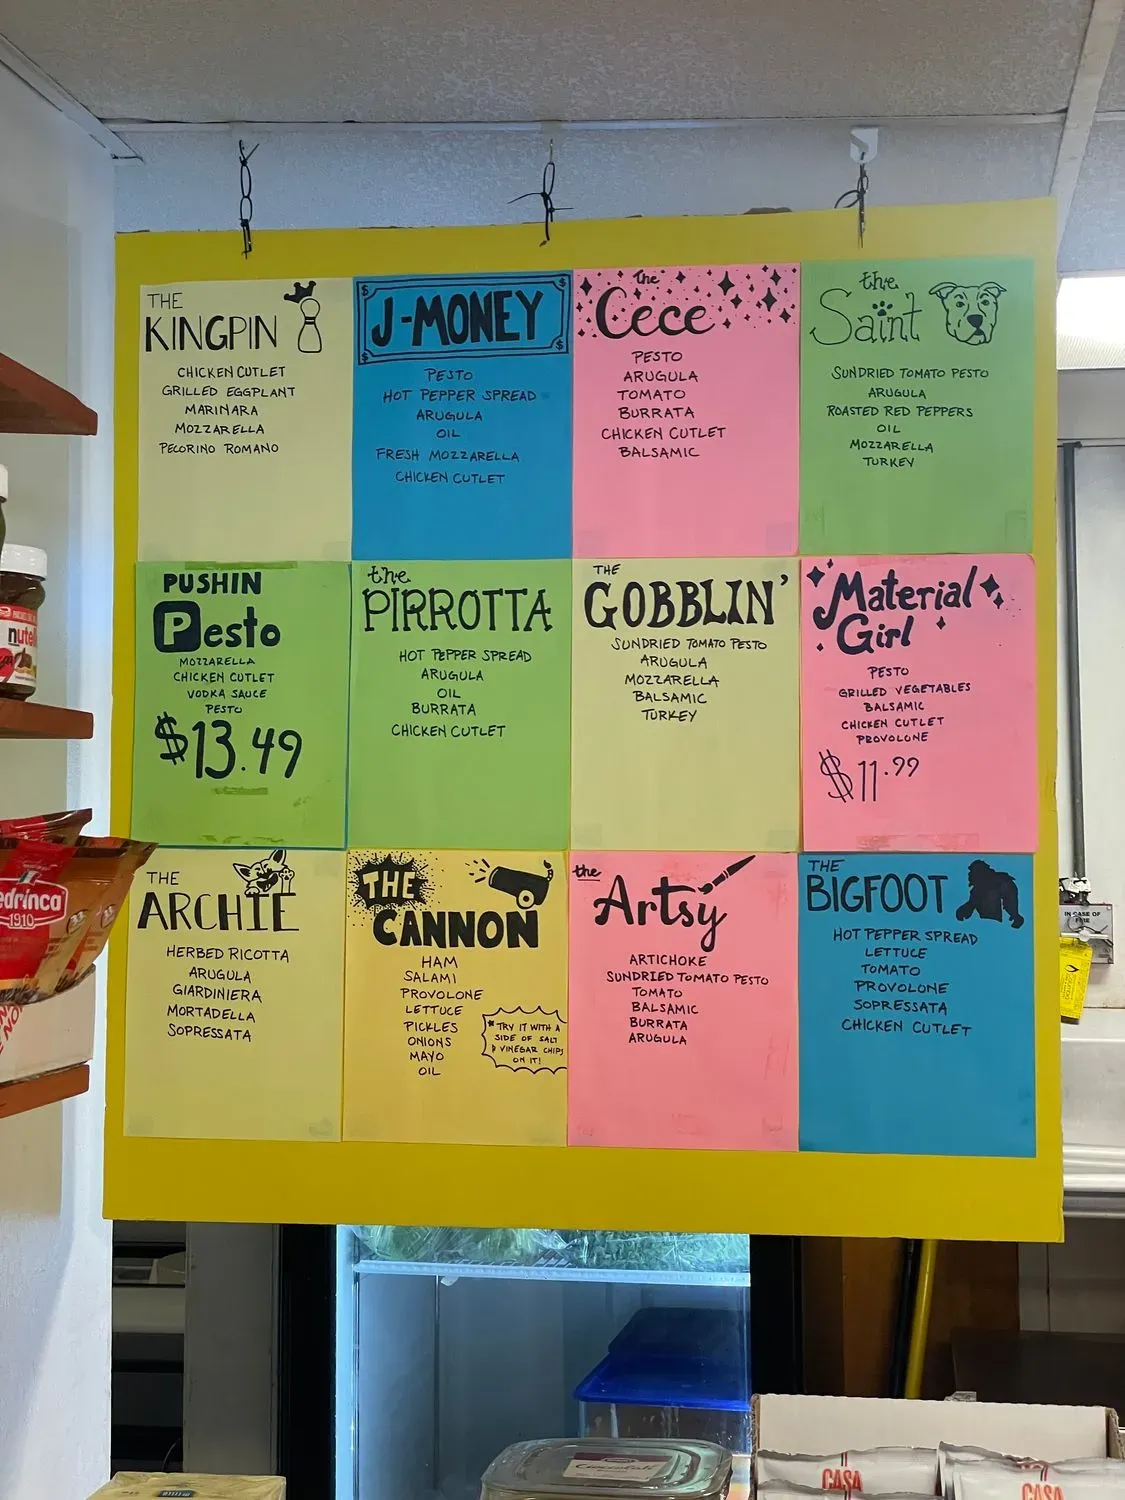 THE
KINGPIN
CHICKEN CUTLET
GRILLED EGGPLANT
MARINARA
MOZZARELLA
PECORINO ROMANO
J-MONEY
PESTO
HOT PEPPER SPREAD
ARUGULA
OIL
FRESH MOZZARELLA
CHICKEN CUTLET
the
Cece
PESTO
ARUGULA
TOMATO
BURRATA
CHICKEN CUTLET
BALSAMIC
the
Saint
SUNDRIED TOMATO PESTO
ARUGULA
ROASTED RED PEPPERS
OIL
MOZZARELLA
TURKEY
PUSHIN
Pesto
MOZZARELLA
CHICKEN CUTLET
VODKA SAUCE
PESTO
$13.49
the
PIRROTTA
HOT PEPPER SPREAD
ARUGULA
OIL
BURRATA
CHICKEN CUTLET
THE
GOBBLIN'
SUNDRIED TOMATO PESTO
ARUGULA
MOZZARELLA
BALSAMIC
TURKEY
Material
Girl
PESTO
GRILLED VEGETABLES
BALSAMIC
CHICKEN CUTLET
PROVOLONE
$11.99
THE
ARCHIE
HERBED RICOTTA
ARUGULA
GIARDINIERA
MORTADELLA
SOPRESSATA
THE
CANNON
HAM
SALAMI
PROVOLONE
LETTUCE
PICKLES
ONIONS
MAYO
OIL
*TRY IT WITH A
SIDE OF SALT
& VINEGAR CHIPS
ON IT!
the
Artsy
ARTICHOKE
SUNDRIED TOMATO PESTO
TOMATO
BALSAMIC
BURRATA
ARUGULA
THE
BIGFOOT
HOT PEPPER SPREAD
LETTUCE
TOMATO
PROVOLONE
SOPRESSATA
CHICKEN CUTLET
nute
edrinca
1910
IN CASE OF
FIRE
CASA
CASA